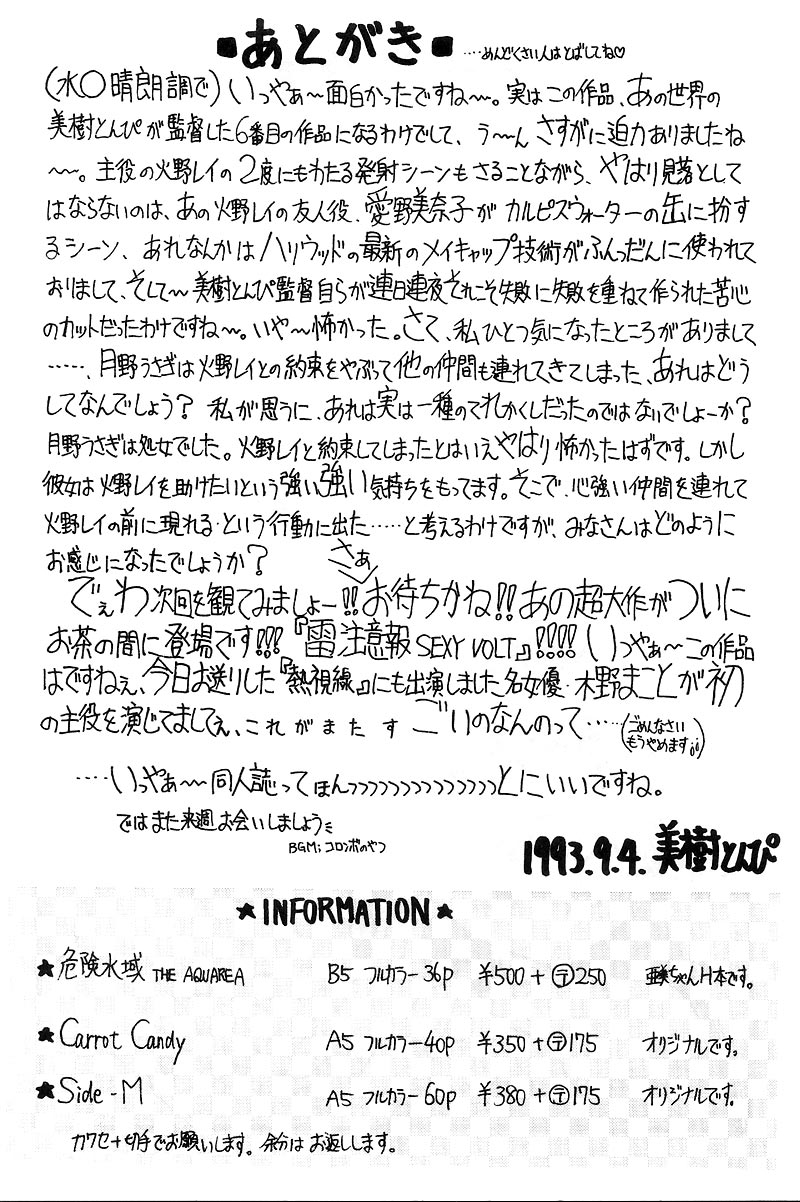 ■あとがき■ ‥‥めんどくさい人はとばしてね♡
(水○晴朗調で)いっやぁ〜面白かったですね〜。実はこの作品、あの世界の
美樹とんぴが監督した6番目の作品になるわけでして、う〜ん さすがに迫力ありましたね
〜〜。主役の火野レイの2度にもわたる発射シーンもさることながら、やはり見落として
はならないのは、あの火野レイの友人役、愛野美奈子がカルピスウォーターの缶に扮す
るシーン、あれなんかはハリウッドの最新のメイキャップ技術がふんだんに使われて
おりまして、そして〜美樹とんぴ監督自らが連日連夜それこそ失敗に失敗を重ねて作られた苦心
のカットだったわけですね〜。いや〜怖かった。さて、私ひとつ気になったところがありまして
‥‥‥、月野うさぎは火野レイとの約束をやぶって他の仲間も連れてきてしまった、あれはどう
してなんでしょう? 私が思うに、あれは実は一種のてれかくしだったのではないでしょーか?
月野うさぎは処女でした。火野レイと約束してしまったとはいえやはり怖かったはずです。しかし
彼女は火野レイを助けたいという強い強い気持ちをもってます。そこで、心強い仲間を連れて
火野レイの前に現れる‥という行動に出た‥‥‥と考えるわけですが、みなさんはどのように
お感じになったでしょうか?
さぁ
でぇわ次回を観てみましょー!!お待ちかね!!あの超大作がついに
お茶の間に登場です!!!『雷注意報 SEXY VOLT』!!!!いっやぁ〜この作品
はですねぇ、今日お送りした『熱視線』にも出演しました名女優・木野まことが初
の主役を演じてましてぇ、これがまたすごいのなんのって‥‥‥(ごめんなさい
もうやめます;;)
‥‥いっやぁ〜〜同人誌ってほんっっっっっっっっっっっっっっとにいいですね。
ではまた来週お会いしましょう
BGM;コロンボのやつ
1993.9.4. 美樹とんぴ
★INFORMATION★
★危険水域 THE AQUAREA B5 フルカラー36p ¥500+〒250 亜美ちゃんH本です。
★Carrot Candy A5 フルカラー40p ¥350+〒175 オリジナルです。
★Side-M A5 フルカラー60p ¥380+〒175 オリジナルです。
カワセ+切手でお願いします。余分はお返しします。